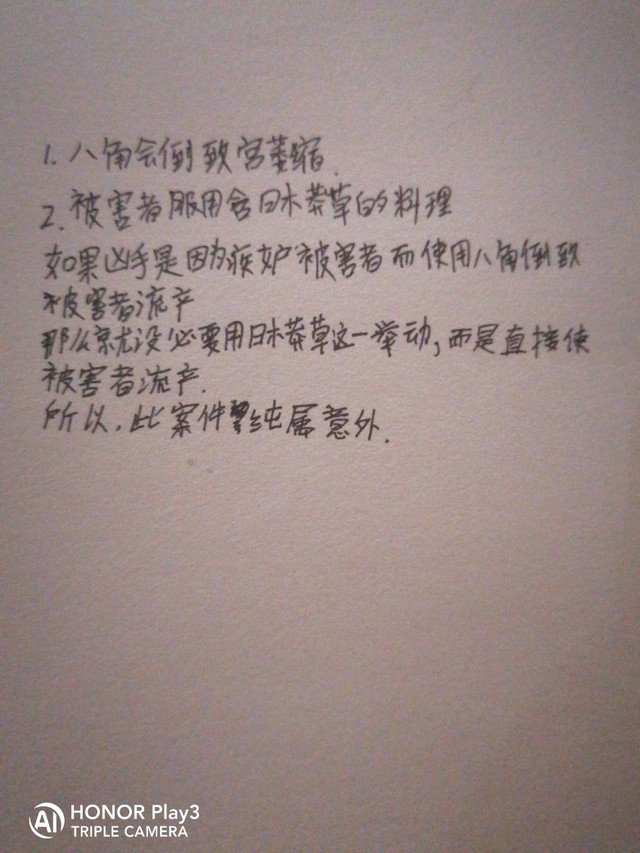 1. 八角会倒致宫萎缩.
2. 被害者服用含日本莽草的料理
如果凶手是因为疾妒被害者而使用八角倒致
被害者流产
那么就没必要用日本莽草这一举动,而是直接使
被害者流产.
所以,此案件纯属意外.
HONOR Play3
TRIPLE CAMERA